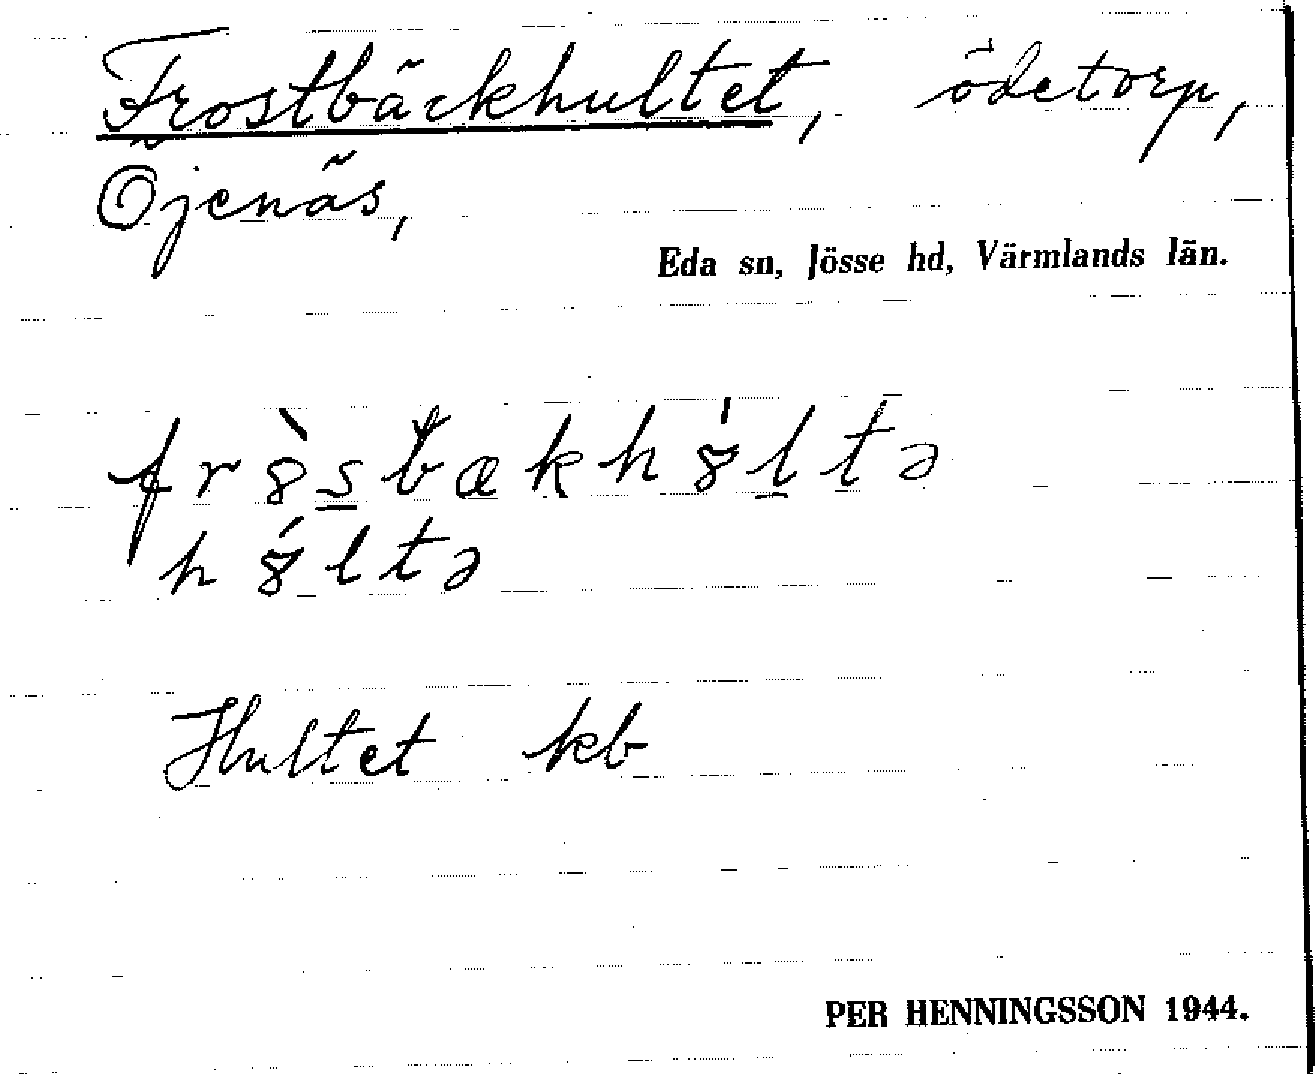 Frostbäckhultet, ödetorp,
Öjenäs,
Eda sn, Jösse hd, Värmlands län.
frꝏ̀sbækhꝏ́ltə
hꝏ́ltə
Hultet kb
PER HENNINGSSON 1944.